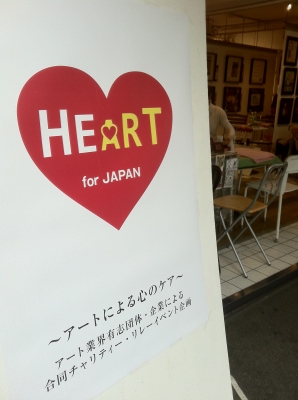 HEART
for JAPAN
～アートによる心のケア～
アート業界有志団体・企業による
合同チャリティー・リレーイベント企画